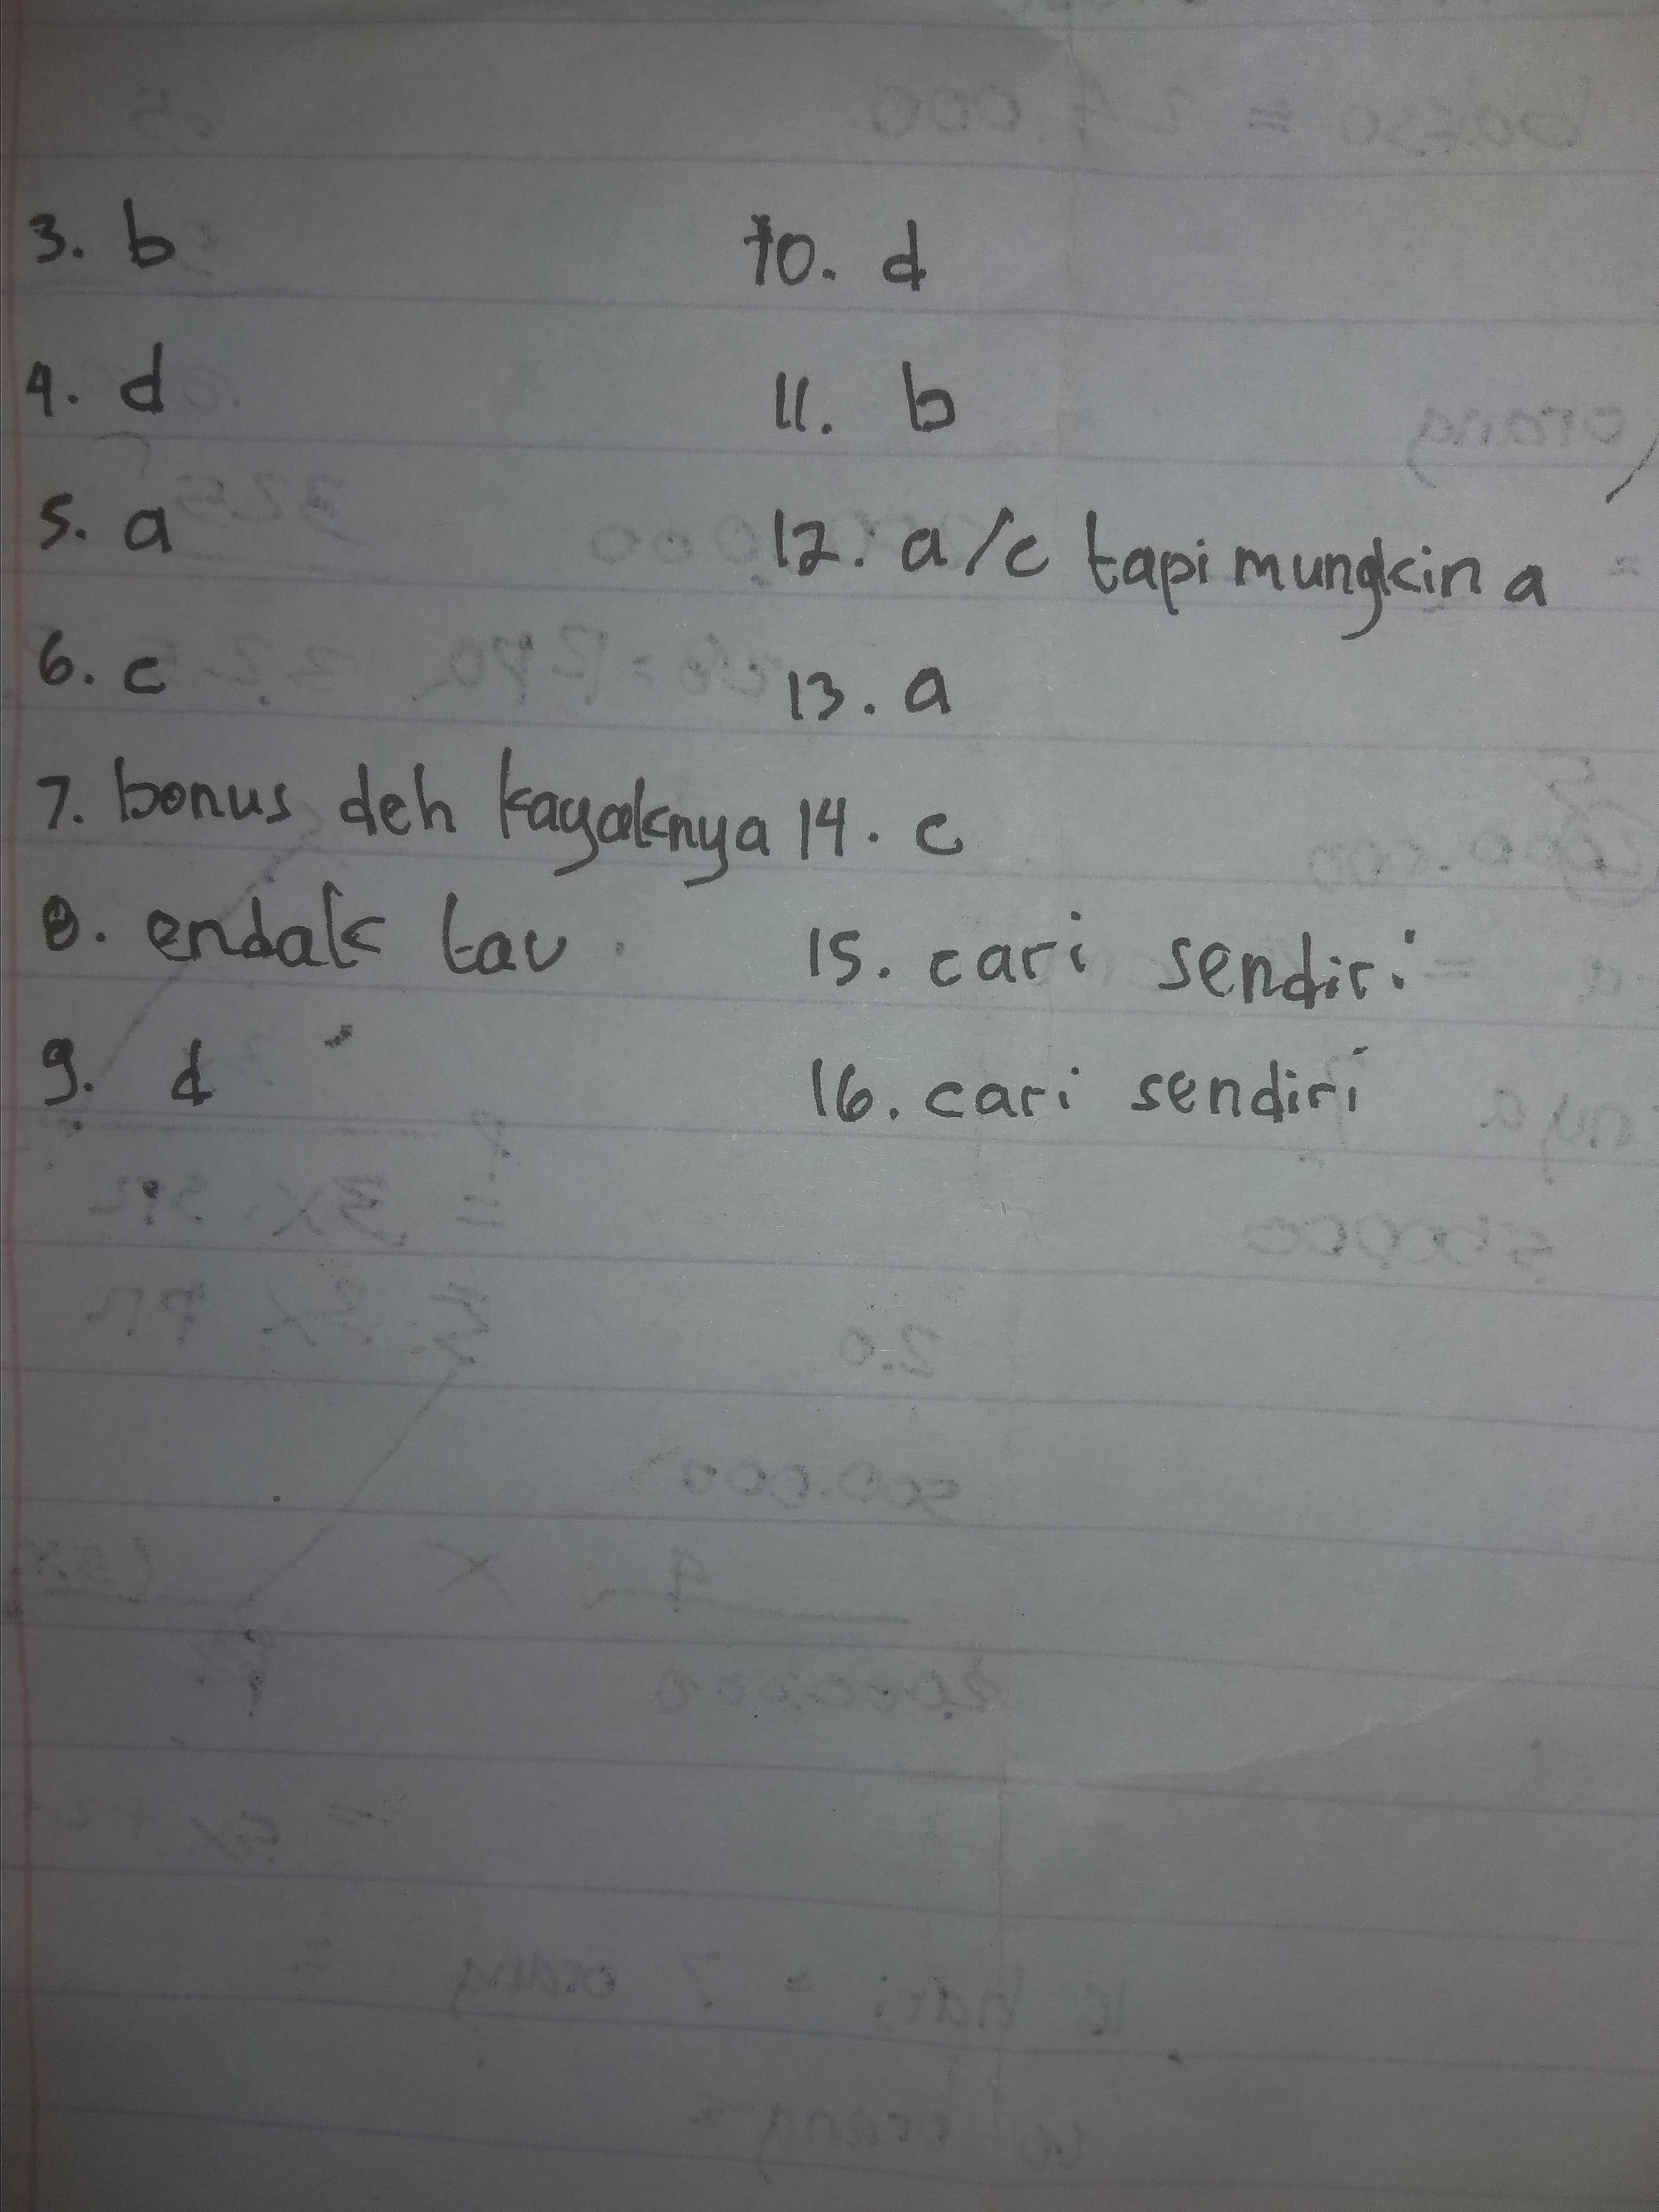 3. b
4. d
5. a
6. c
7. bonus deh kayaknya
8. endak tau
9. d
10. d
11. b
12. a/c tapi mungkin a
13. a
14. c
15. cari sendiri
16. cari sendiri